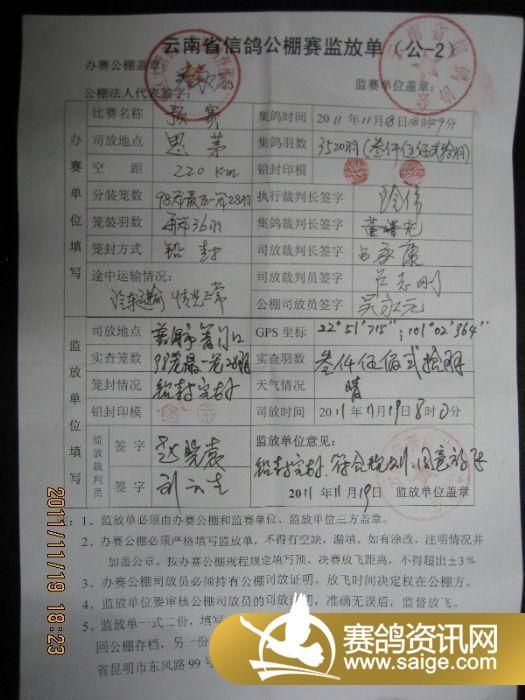 云南省信鸽公棚赛监放单（公-2）
办赛公棚盖章：
监赛单位盖章：
公棚法人代表签字：
办赛单位填写
比赛名称 预赛 集鸽时间 2011年11月18日18时29分
司放地点 思茅 集鸽羽数 3520羽(叁仟伍佰贰拾羽)
空距 220 Km 铅封印模
分装笼数 98笼最后一笼28羽 执行裁判长签字
笼装羽数 每笼36羽 集鸽裁判长签字
笼封方式 铅封 司放裁判长签字
途中运输情况： 司放裁判员签字
汽车运输 情况正常 公棚司放员签字
监放单位填写
司放地点 GPS 坐标 22°51′715″；101°02′964″
实查笼数 98笼最后一笼28羽 实查羽数 叁仟伍佰贰拾羽
笼封情况 铅封完好 天气情况 晴
铅封印模 司放时间 2011年11月19日8时0分
监放裁判员
签字 监放单位意见：
铅封完好、符合规则、同意放飞
签字 2011年11月19日 监放单位盖章
：1、监放单必须由办赛公棚和监赛单位、监放单位三方盖章。
2、办赛公棚必须严格填写监放单，不得有空缺，漏填。如有涂改，注明情况并
加盖公章。按办赛公棚规程规定填写预、决赛放飞距离，不得超出±3%
3、办赛公棚司放员必须持有公棚司放证明，放飞时间决定权在公棚方。
4、监放单位要审核公棚司放员的司放证明，准确无误后，监督放飞。
5、监放单一式二份，填写
回公棚存档，另一份
省昆明市东风路 99 号
2011/11/19 18:23
赛鸽资讯网
www.saige.com